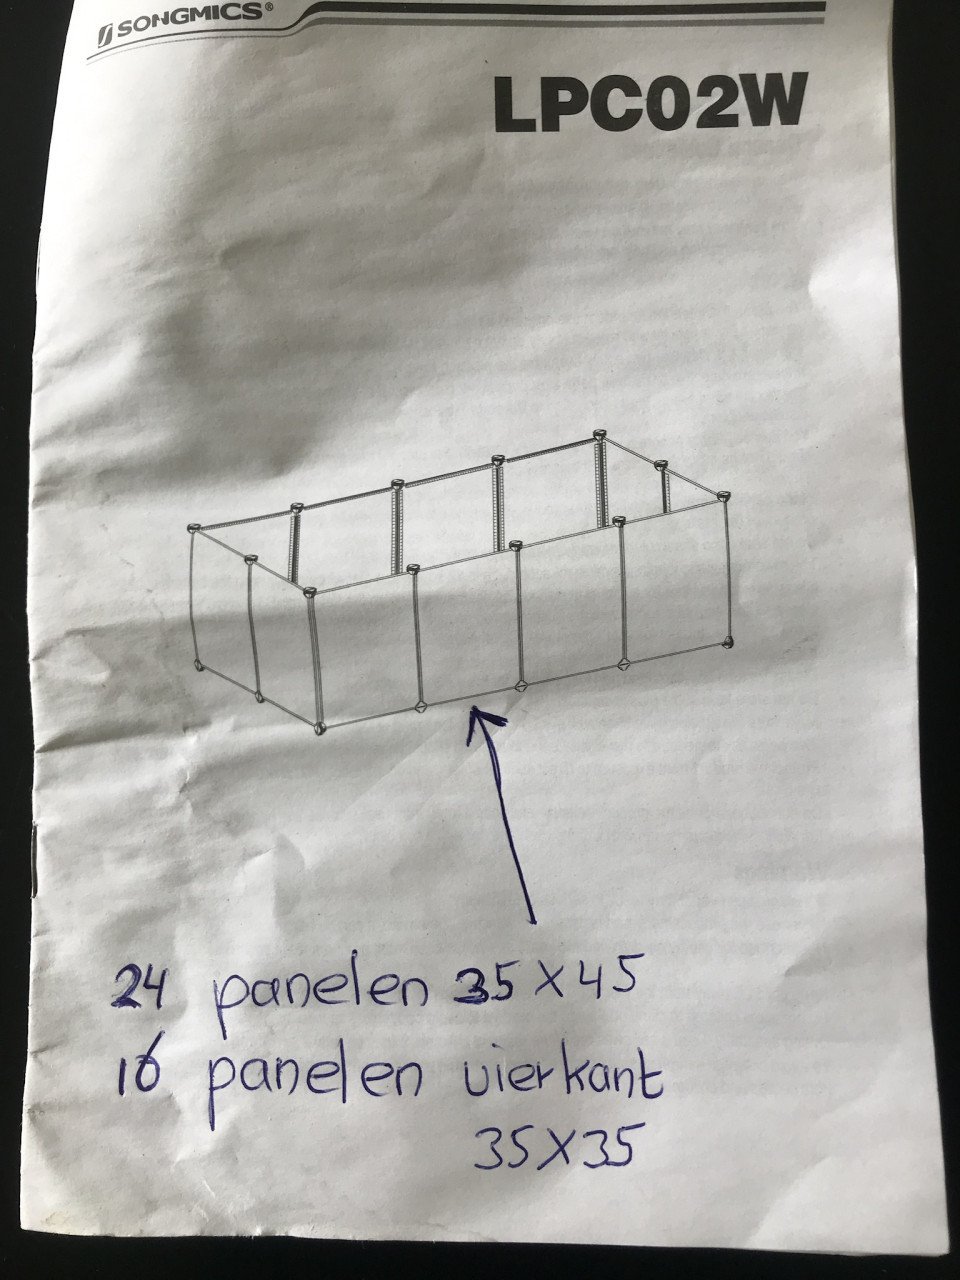 SONGMICS®
LPC02W
24 panelen 35 X 45
16 panelen vierkant
35 X 35